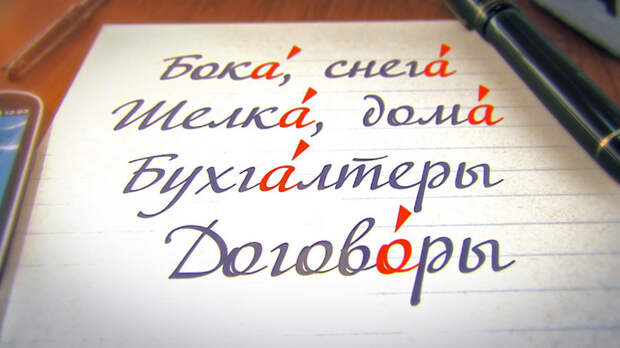 Бока́, снега́
Шелка́, дома́
Бухга́лтеры
Догово́ры